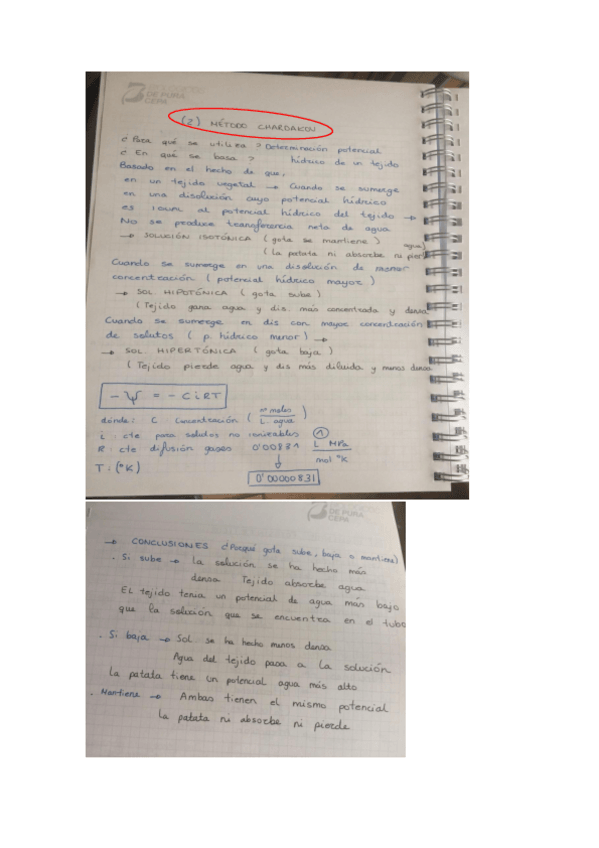 DE PURA
CEPA
(2) MÉTODO CHARDAKOV
¿ Para qué se utiliza ? Determinación potencial
¿ En qué se basa ? hídrico de un tejido
Basado en el hecho de que,
en un tejido vegetal → Cuando se sumerge
en una disolución cuyo potencial hídrico
es igual al potencial hídrico del tejido →
No se produce transferencia neta de agua
→ SOLUCIÓN ISOTÓNICA ( gota se mantiene )
( La patata ni absorbe ni pierde agua)
Cuando se sumerge en una disolución de menor
concentración ( potencial hídrico mayor )
→ SOL HIPOTÓNICA ( gota sube )
( Tejido gana agua y dis. más concentrada y densa
Cuando se sumerge en dis con mayor concentración
de solutos ( p. hídrico menor ) →
→ SOL. HIPERTÓNICA ( gota baja )
( Tejido pierde agua y dis más diluida y menos densa
- Ψ = - CiRT
dónde: C : Concentración ( nº moles / L agua )
i : cte para solutos no ionizables ①
R : cte difusión gases 0'00831 L MPa / mol ºK
T : (ºK)
0'00000831
DE PURA
CEPA
→ CONCLUSIONES ¿Porqué gota sube, baja o mantiene)
. Si sube → La solución se ha hecho más
densa Tejido absorbe agua
El tejido tenía un potencial de agua más bajo
que la solución que se encuentra en el tubo
. Si baja → Sol se ha hecho menos densa
Agua del tejido pasa a la solución
La patata tiene un potencial agua más alto
. Mantiene → Ambas tienen el mismo potencial
La patata ni absorbe ni pierde